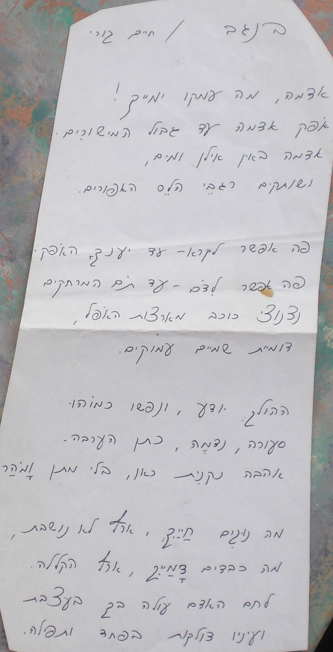 בנגב / חיים גורי
אדמה, מה עמקו ימייך!
אופק אדמה עד גבול המישורים.
אדמה באין אילן ומים,
ושותקים רגבי הלס האפורים.
פה אפשר לקרא – עד יענה האופק.
פה אפשר לדום – עד תום המרחקים
נצנוצי כוכב מארצות האופל,
דומיית שמיים עמוקים.
ההולך יודע, ונפשו כמוהו
סעורה, נדמה, כחן הערבה.
אהבה נקנית כאן, בלי מתן וָמֹהַר
מה נוגים חַיַּיִךְ, ארץ לא נושבת,
מה כבדים דָּמַיִךְ, ארץ הקללה.
לחם האדם עולה בך בעצבת
ועיניו דולקות בפחד ותפילה.